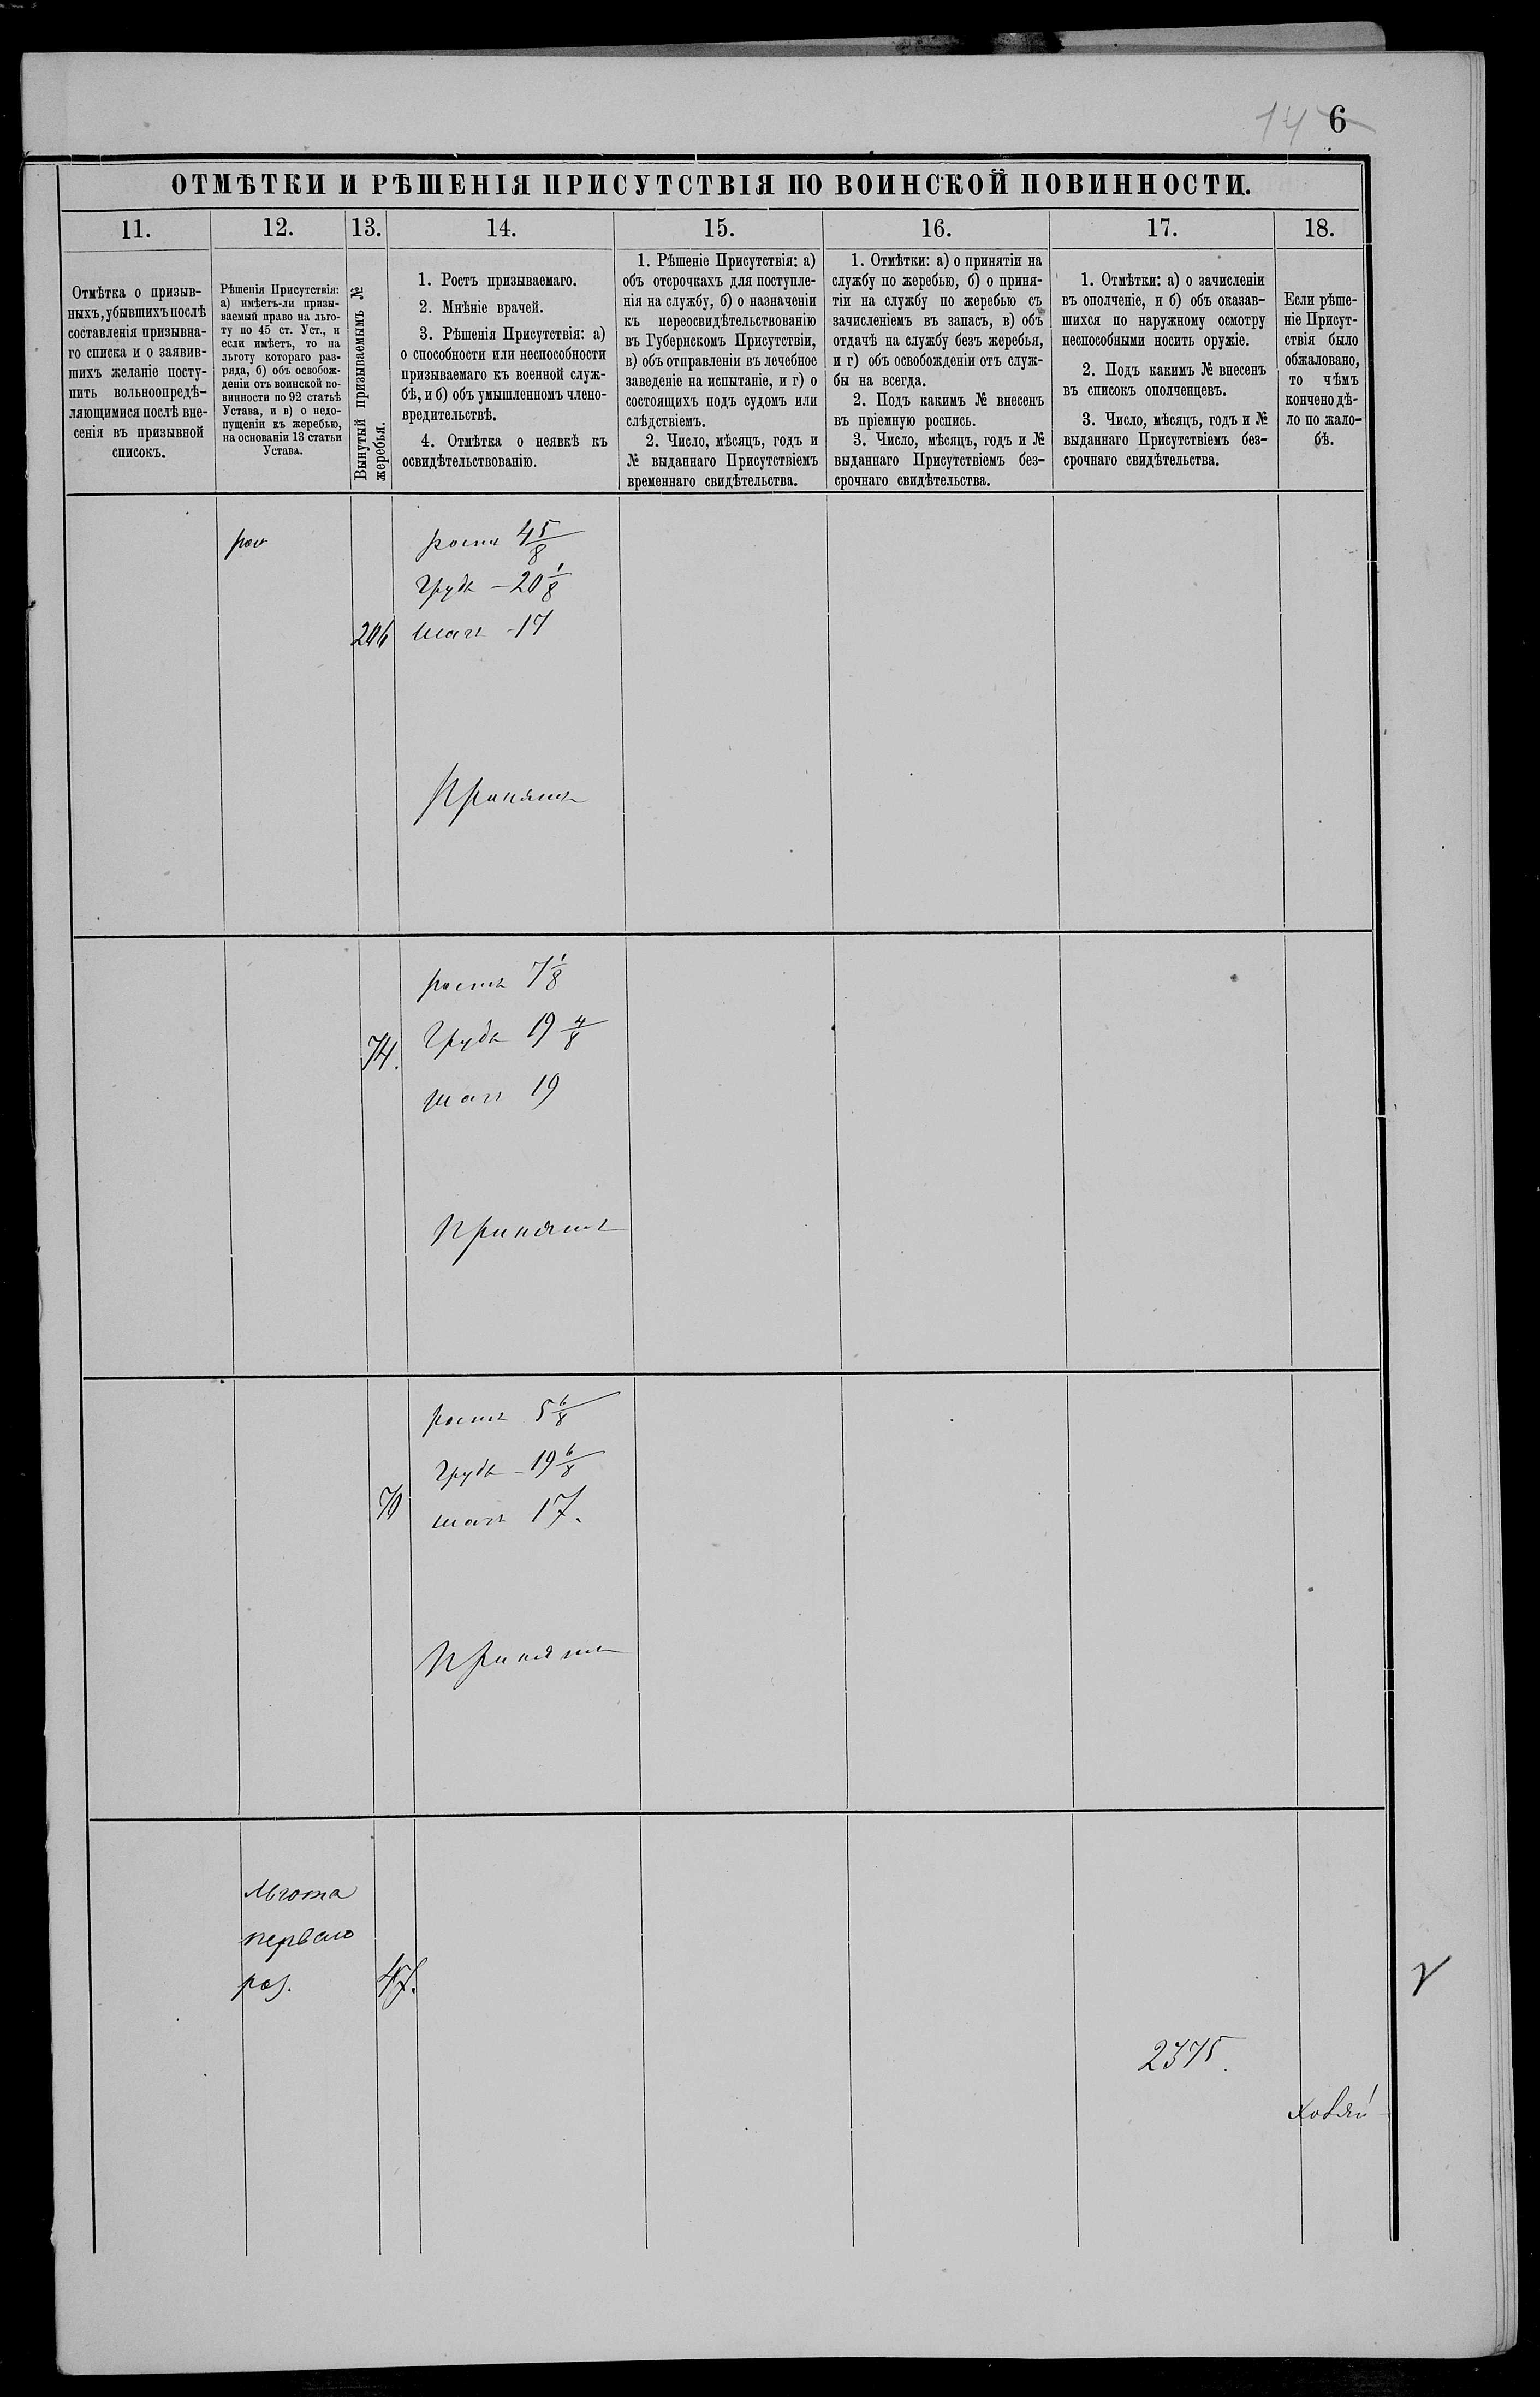 14 6
ОТМѢТКИ И РѢШЕНІЯ ПРИСУТСТВІЯ ПО ВОИНСКОЙ ПОВИННОСТИ.
11.
12.
13.
14.
15.
16.
17.
18.
Отмѣтка о призыв-
ныхъ, убывшихъ послѣ
составленія призывна-
го списка и о заявив-
шихъ желаніе посту-
пить вольноопредѣ-
ляющимися послѣ вне-
сенія въ призывной
списокъ.
Рѣшенія Присутствія:
а) имѣетъ-ли призы-
ваемый право на льго-
ту по 45 ст. Уст., и
если имѣетъ, то на
льготу котораго раз-
ряда, б) объ освобож-
деніи отъ воинской по-
винности по 92 статьѣ
Устава, и в) о недо-
пущеніи къ жеребью,
на основаніи 13 статьи
Устава.
Вынутый призываемымъ №
жеребья.
1. Ростъ призываемаго.
2. Мнѣніе врачей.
3. Рѣшенія Присутствія: а)
о способности или неспособности
призываемаго къ военной служ-
бѣ, и б) объ умышленномъ члено-
вредительствѣ.
4. Отмѣтка о неявкѣ къ
освидѣтельствованію.
1. Рѣшеніе Присутствія: а)
объ отсрочкахъ для поступле-
нія на службу, б) о назначеніи
къ переосвидѣтельствованію
въ Губернскомъ Присутствіи,
в) объ отправленіи въ лечебное
заведеніе на испытаніе, и г) о
состоящихъ подъ судомъ или
слѣдствіемъ.
2. Число, мѣсяцъ, годъ и
№ выданнаго Присутствіемъ
временнаго свидѣтельства.
1. Отмѣтки: а) о принятіи на
службу по жеребью, б) о приня-
тіи на службу по жеребью съ
зачисленіемъ въ запасъ, в) объ
отдачѣ на службу безъ жеребья,
и г) объ освобожденіи отъ служ-
бы на всегда.
2. Подъ какимъ № внесенъ
въ пріемную роспись.
3. Число, мѣсяцъ, годъ и №
выданнаго Присутствіемъ без-
срочнаго свидѣтельства.
1. Отмѣтки: а) о зачисленіи
въ ополченіе, и б) объ оказав-
шихся по наружному осмотру
неспособными носить оружіе.
2. Подъ какимъ № внесенъ
въ списокъ ополченцевъ.
3. Число, мѣсяцъ, годъ и №
выданнаго Присутствіемъ без-
срочнаго свидѣтельства.
Если рѣше-
ніе Присут-
ствія было
обжаловано,
то чѣмъ
кончено дѣ-
ло по жало-
бѣ.
ростъ 4 5/8
Грудь — 20 1/8
206 шагъ - 17
Принятъ
ростъ 7 1/8
74. Грудь 19 4/8
шагъ 19
Принятъ
ростъ 5 6/8
Грудь - 19 6/8
70 шагъ 17.
Принятъ
Льгота
перваго
раз. 47.
2375.